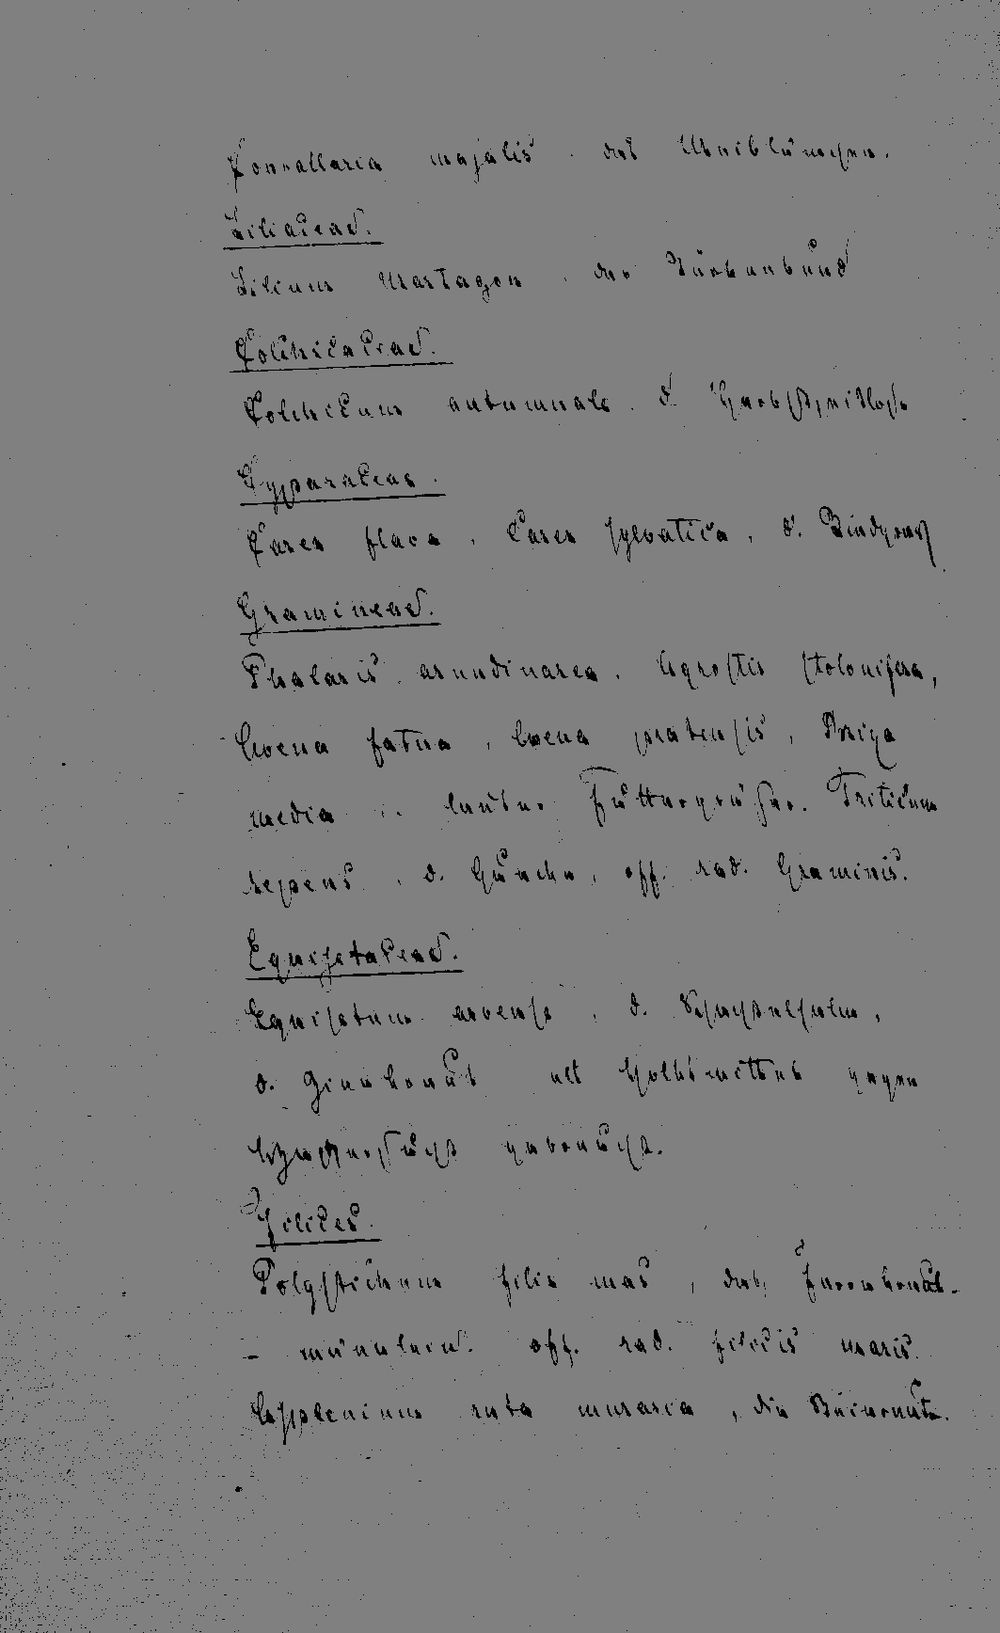 Convallaria majalis. das Maiblümchen.
Liliaceae.
Lilium Martagon. der Türkenbund
Colchicaceae.
Colchicum autumnale. d. Herbstzeitlose
Cyperaceae.
Carex flava, Carex sylvatica, d. Riedgras
Gramineae.
Phalaris arundinacea. Agrostis stolonifera,
Avena fatua, Avena pratensis, Briza
media .. lauter Futtergräser. Triticum
repens, d. Quecke, off. rad. Graminis.
Equisetaceae.
Equisetum arvense, d. Schachtelhalm,
d. Zinnkraut als Volksmittel gegen
Wassersucht gebraucht.
Filices.
Polystichum filix mas, das Farrenkraut-
- männlein. off. rad. filicis maris.
Asplenium ruta muraria, die Mauerraute.